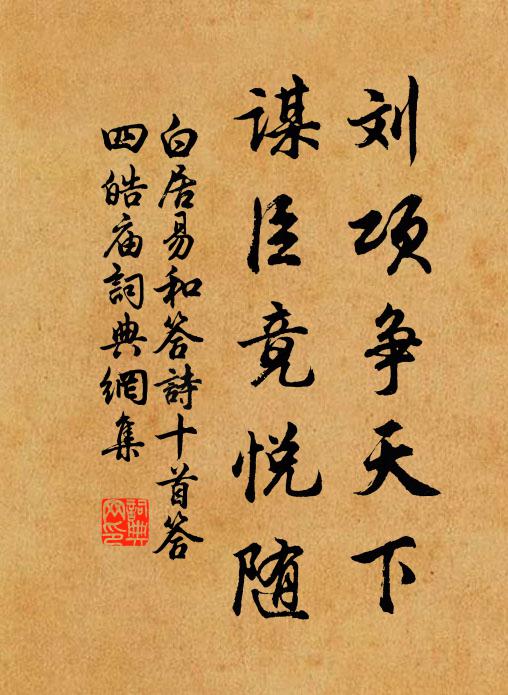 刘项争天下
谋臣竟悦随
白居易和答詩十首答
四皓庙詞典網集
詞典网印